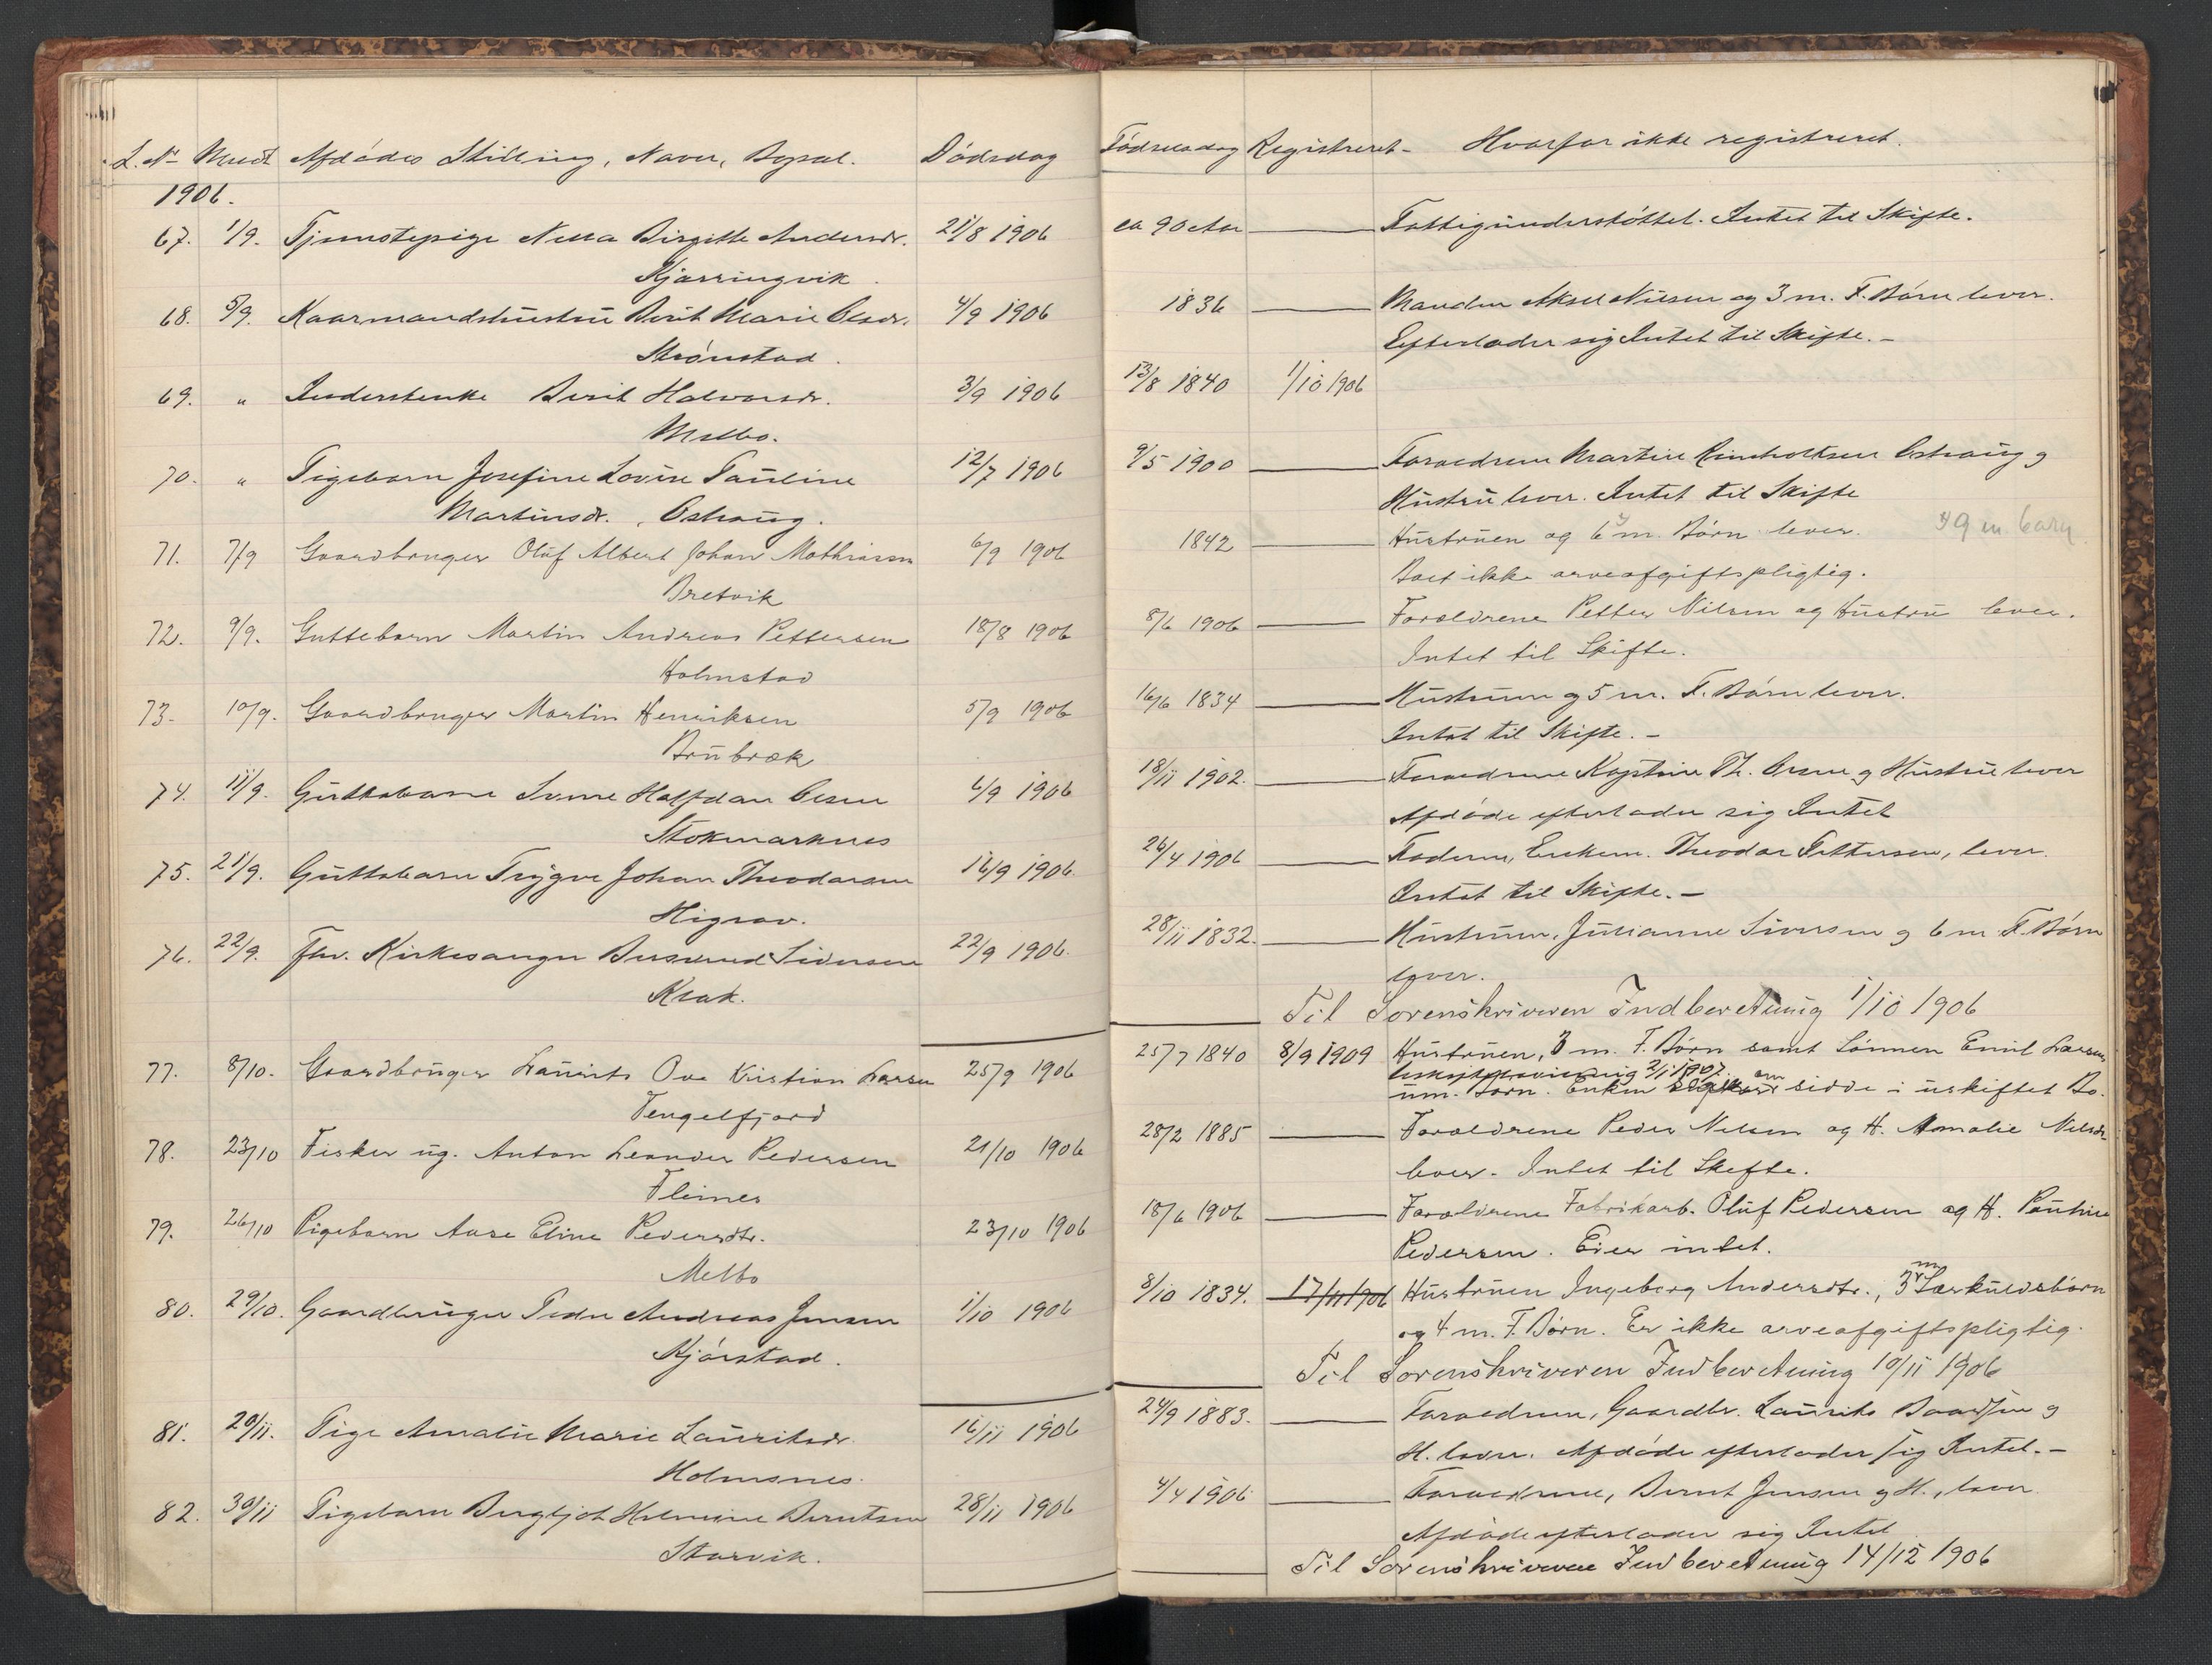 L. No Meldt Afdødes Stilling, Navn, Bopæl. Dødsdag Fødselsdag Registreret- Hvorfor ikke registreret.
1906.
67. 1/9. Tjenestepige Nella Birgitte Andersdr. 21/8 1906 ca 90 Aar Fattigunderstøttet. Intet til Skifte.
Kjærringvik.
68. 5/9. Kaarmandshustru Berit Marie Olsdr. 4/9 1906 1836 Manden Aksel Nilsen og 3 m. F. Børn lever.
Strønstad. Efterlader sig Intet til Skifte.-
69. " Inderstenke Berit Halvorsdr. 3/9 1906 13/8 1840 1/10 1906
Melbo.
70. " Pigebarn Josefine Lovise Pauline 12/7 1906 9/5 1900 Forældrene Martin Reinholtsen Oshaug og
Martinsdr., Oshaug. Hustru lever. Intet til Skifte
71. 7/9 Gaardbruger Oluf Albert Johan Mathisen 6/9 1906 1842 Hustruen og 6 m. Børn lever. 9 m. barn
Bretvik Boet ikke arveafgiftspligtig.
72. 9/9. Guttebarn Martin Andreas Pettersen 18/8 1906 8/6 1906 Forældrene Petter Nilsen og Hustru lever.
Holmstad Intet til Skifte.
73. 10/9. Gaardbruger Martin Henriksen 5/9 1906 16/6 1834 Hustruen og 5 m. F. Børn lever.
Brubræk Intet til Skifte.-
74. 11/9. Guttebarn Halfdan Olsen 6/9 1906 18/11 1902. Forældrene Kaptein Th. Olsen og Hustru lever
Stokmarknes Afdøde efterlader sig Intet
75. 21/9. Guttebarn Trygve Johan Theodorsen 16/9 1906 26/4 1906 Faderen, Enkem. Theodor Pettersen, lever.
Higrav. Intet til Skifte.-
76. 22/9. fhv. Kirkesanger Siversen 22/9 1906. 28/11 1832. Hustruen, Julianne Siversen og 6 m. F. Børn
Krak. lever.
Til Sorenskriveren Indberetning 1/10 1906
77. 8/10. Gaardbruger Laurits Ove Kristian Larsen 25/9 1906 25/7 1840 8/9 1909 Hustruen, 3 m. F. Børn samt Sønnen Emil Larsens
2/1 1907.
Tengelfjord um. Børn. Enken om sidde i uskiftet Bo.
78. 23/10 Fisker ug. Anton Leander Pedersen 21/10 1906 28/2 1885 Forældrene Peder Nilsen og H. Amalie Nilsdr
Fleines lever. Intet til Skifte.
79. 26/10 Pigebarn Aase Eline Pedersdtr. 23/10 1906 18/6 1906 Forældrene Fabrikarb. Oluf Pedersen og H. Pauline
Melbo Pedersen. Eier intet.
80. 29/10. Gaardbruger Peder Andreas Jensen 1/10 1906 8/10 1834. 17/11 1906 Hustruen Ingeborg Andersdtr., 3 m Særkuldsbørn
Kjørstad. og 4 m. F. Børn. Er ikke arveafgiftspligtig.
Til Sorenskriveren Indberetning 10/11 1906
81. 20/11. Pige Amalie Marie Lauritsdr. 16/11 1906 24/9 1883. Forældrene, Gaardbr. Laurits Baardsen og
Holmsnes. H. lever. Afdøde efterlader sig Intet.-
82. 30/11 Pigebarn Bergljot Helmine Berntsen 28/11 1906 4/4 1906 Forældrene, Bernt Jensen og H., lever.
Storvik. Afdøde efterlader sig Intet
Til Sorenskriveren Indberetning 14/12 1906